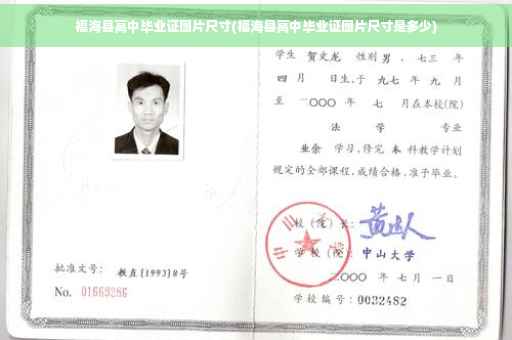 福海县高中毕业证图片尺寸(福海县高中毕业证图片尺寸是多少)
学生 贺文龙 性别 男 、七三 年
四 月 日生,于 九七 年 九 月
至 二〇〇〇 年 七 月在本校(院)
法 学 专业
业余 学习,修完 本 科教学计划
规定的全部课程,成绩合格,准予毕业。
校(院)长:
学校(院): 中山大学
二〇〇〇 年 七 月 一 日
批准文号: 教直[1993]8号
No. 01669286
学校编号:0032482